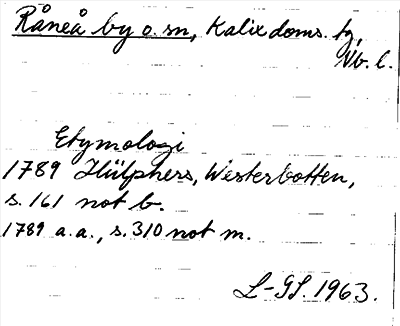 Råneå by o. sn, Kalix doms. tg,
Nb. l.
Etymologi
1789 Hülphers, Westerbotten,
s. 161 not b.
1789 a.a., s. 310 not m.
L-GL. 1963.